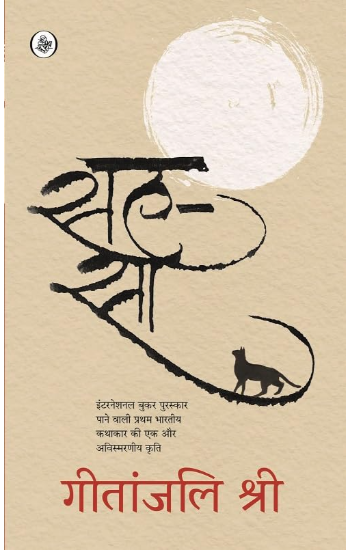 सह-
सा
इंटरनेशनल बुकर पुरस्कार
पाने वाली प्रथम भारतीय
कथाकार की एक और
अविस्मरणीय कृति
गीतांजलि श्री